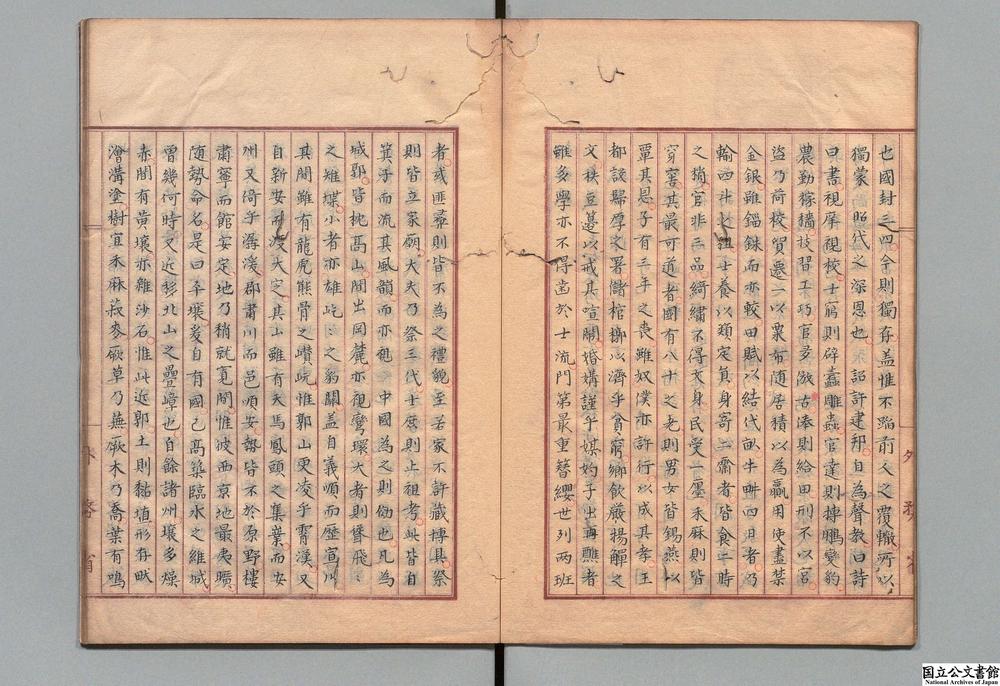 也國封三四今則獨存盖惟不蹈前人之覆轍所以
獨蒙 昭代之深恩也 詔許建邦自為聲教曰詩
曰書視庠視校士窮則辟蠹雕蟲官達則摶鵬變豹
農勤稼穡技習工巧官多倣古俸則給田刑不以宮
盜乃荷校貿遷一以粟布隨居積以為贏用使盡禁
金銀雖錙銖而亦較田賦以結代畝牛畊四日者乃
輸四斗之租士養以類定員身寄二齋者皆食二時
之稍官非三品綺繡不得文身民受一廛禾麻則皆
穿窖其最可道者國有八十之老則男女皆錫燕以
覃其恩子有三年之喪雖奴僕亦許行以成其孝王
都設歸厚之署儲棺槨以濟乎貧窮鄉飲嚴揚觶之
文秩豆籩以戒其喧鬧婚媾謹乎媒妁子出再醮者
雖多學亦不得齒於士流門第最重簪纓世列兩班
者或匪彝則皆不為之禮貌至若家不許藏博具祭
則皆立家廟大夫乃祭三代士庶則止祖考此皆自
箕子而流其風韻而亦視 中國為之則傚也凡為
城郭皆抵高山間出岡麓亦視彎環大者則聳飛飛
之雉堞小者亦雄屹屹之豹關盖自義順而歷宣川
其間雖有龍虎熊骨之巑岏惟郭山更凌乎霄漢又
自新安而渡大定其山雖有天馬鳳頭之集業而安
州又倚乎潺湲郡肅川而邑順安勢皆不於原野樓
肅寧而館安定地乃稍就寬閒惟彼西京地最夷曠
隨勢命名是曰平壤爰自有國已高築臨水之維城
曾幾何時又近移北山之疊嶂也自餘諸州壤多燥
赤間有黃壤亦雜沙石惟此近郭土則黏埴形存畎
澮溝塗樹宜禾麻菽麥厥草乃蕪厥木乃喬葉有鳴
外務省
国立公文書館
National Archives of Japan